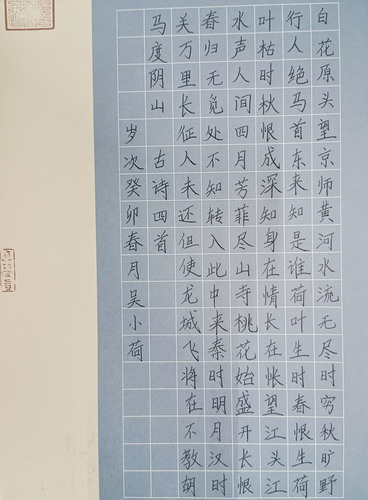 白花原头望京师黄河水流无尽时穷秋旷野
行人绝马首东来知是谁荷叶生时春恨生荷
叶枯时秋恨成深知身在情长在怅望江头江
水声人间四月芳菲尽山寺桃花始盛开长恨
春归无觅处不知转入此中来秦时明月汉时
关万里长征人未还但使龙城飞将在不教胡
马度阴山 古诗四首
岁次癸卯春月吴小荷